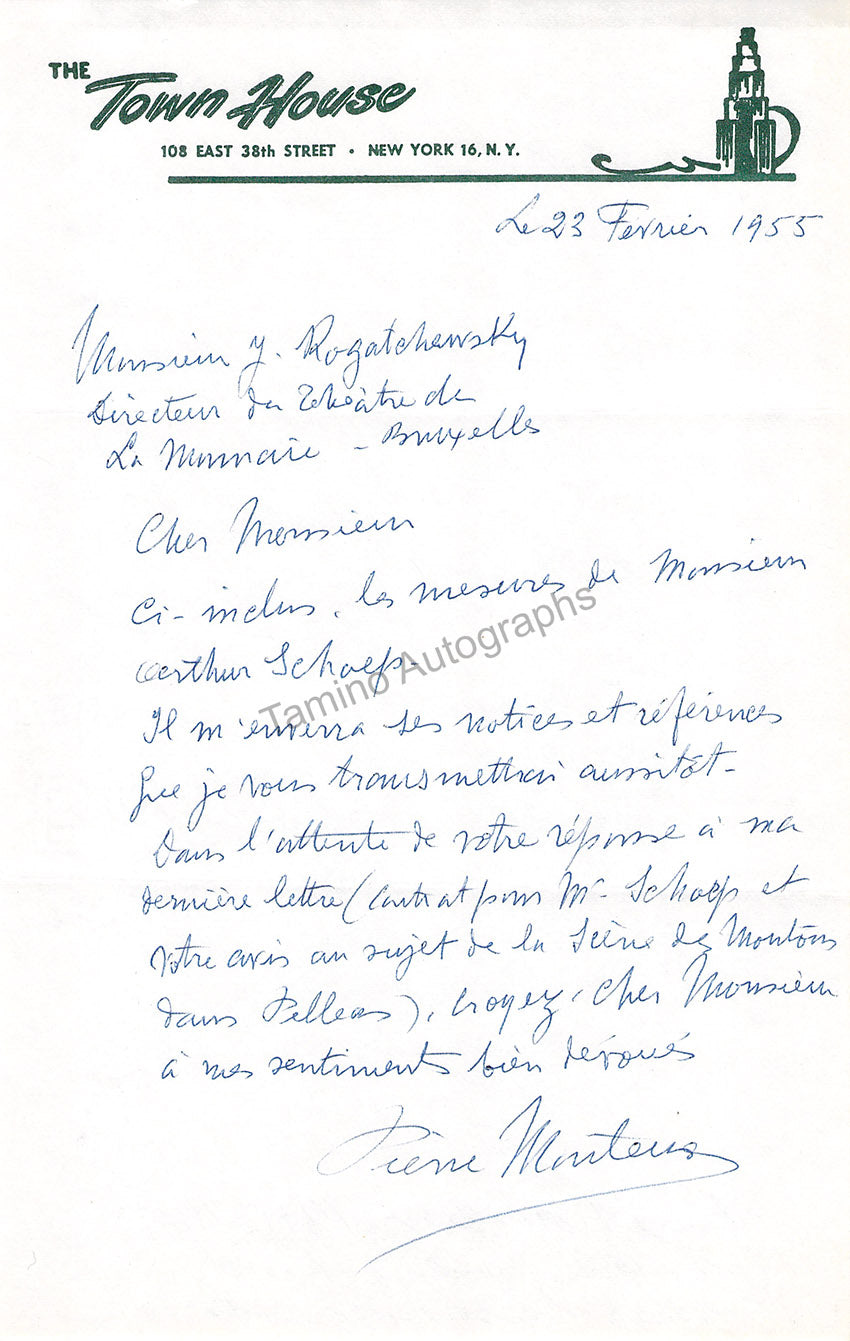 THE
Town House
108 EAST 38th STREET • NEW YORK 16, N. Y.
Le 23 Février 1955
Monsieur J. Rogatchewsky
Directeur du Théâtre de
La Monnaie - Bruxelles
Cher Monsieur
Ci-inclus, les mesures de Monsieur
Arthur Schoep.
Tamino Autographs
Il m'enverra ses notices et références
que je vous transmettrai aussitôt-
Dans l'attente de votre réponse à ma
dernière lettre (contrat pour Mr. Schoep et
votre avis au sujet de la Scène des Moutons
dans Pelleas), croyez, Cher Monsieur
à mes sentiments bien dévoués
Pierre Monteux